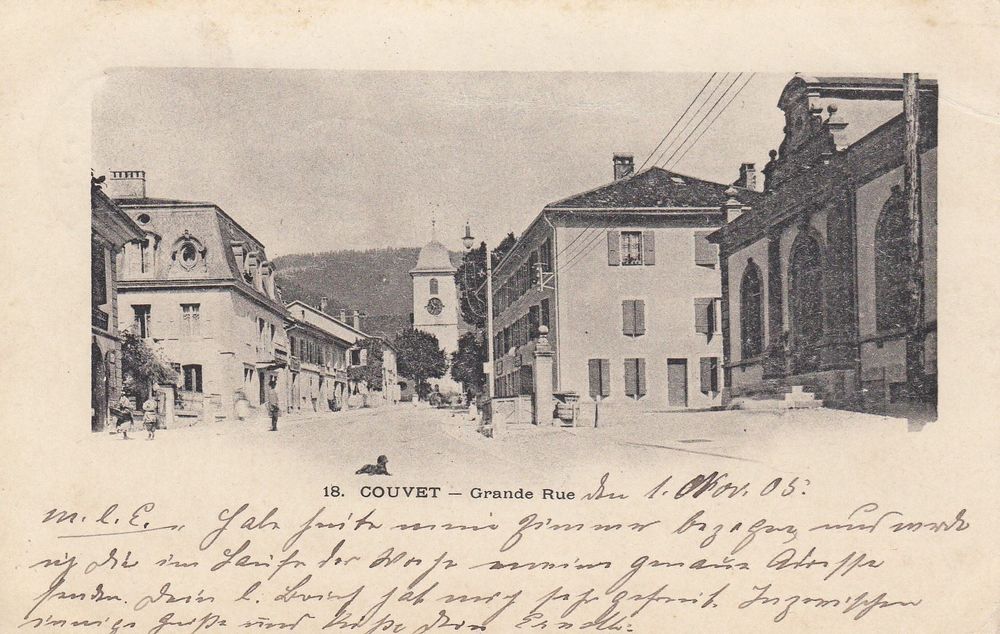 18. COUVET — Grande Rue den 1. Nov. 05.
M. l. E. Habe heute meine Zimmer bezogen und werde
ich Dir im Laufe der Woche meine genaue Adresse
senden. Dein l. Brief hat mich sehr gefreut. Inzwischen
innige Grüße und Küße Dein